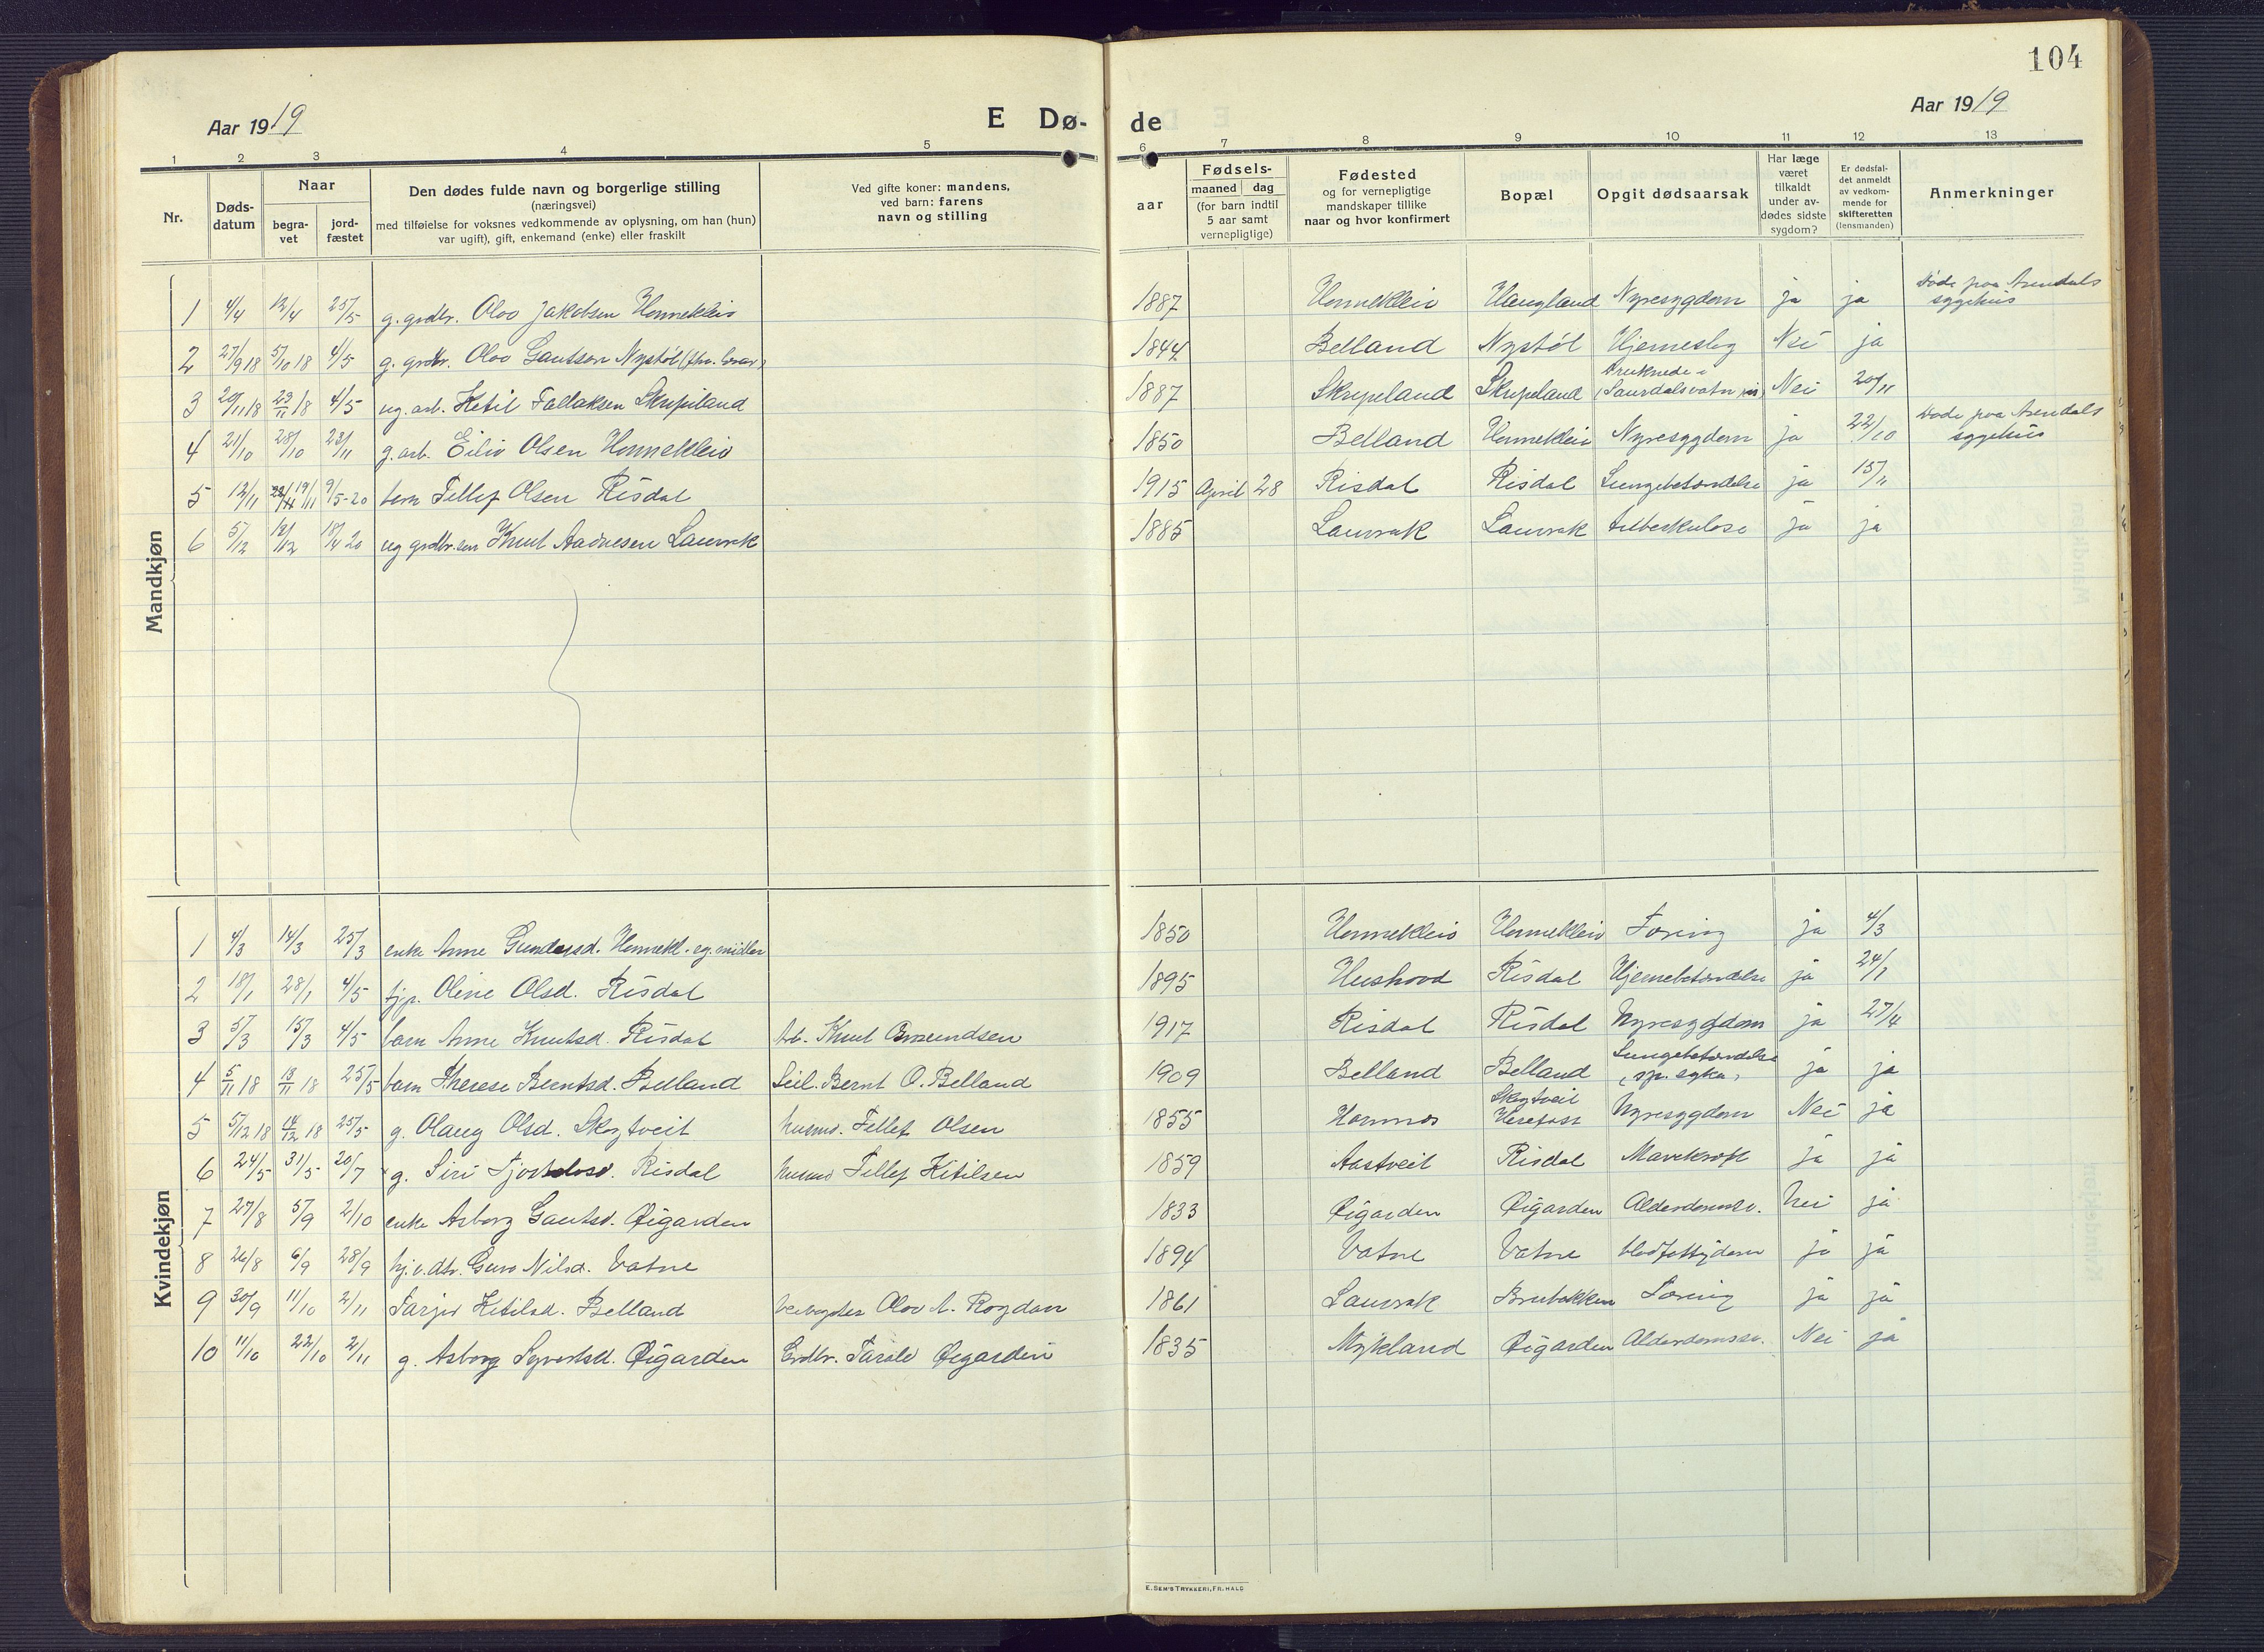 104
Aar 1919 E Dø- de Aar 1919
1 2 3 4 5 6 7 8 9 10 11 12 13
Nr. Døds-datum Naar begra-vet jord-fæstet Den dødes fulde navn og borgerlige stilling (næringsvei) med tilføielse for voksnes vedkommende av oplysning, om han (hun) var ugift), gift, enkemand (enke) eller fraskilt Ved gifte koner: mandens, ved barn: farens navn og stilling aar Fødsels- maaned dag (for barn indtil 5 aar samt vernepligtige) Fødested og for vernepligtige mandskaper tillike naar og hvor konfirmert Bopæl Opgit dødsaarsak Har læge været tilkaldt under av-dødes sidste sygdom? Er dødsfal-det anmeldt av vedkom-mende for skifteretten (lensmanden) Anmerkninger
Mandkjøn
1 4/4 12/4 25/5 g. grdbr. Olav Jakobsen Honnekleiv 1887 Honnekleiv Haugland Nyresygdom ja ja Døde paa Arendals sygehus
2 27/9 18 5/10 18 4/5 g. grdbr. Olav Gautsen Nystøl 1844 Belland Nystøl Hjerneslag Nei ja
3 20/11 18 29/11 18 4/5 ug. arb. Ketil Tallaksen Skripeland 1887 Skripeland Skripeland Druknede i (Saurdalsvatn) Nei 20/11
4 21/10 28/10 23/11 g. arb. Eiliv Olsen Honnekleiv 1850 Belland Honnekleiv Nyresygdom ja 22/10 Døde paa Arendals sygehus
5 12/11 19/11 9/5-20 barn Tellef Olsen Risdal 1915 April 28 Risdal Risdal Lungebetændelse ja 15/11
6 5/12 12/12 18/4 20 ug grdbr.søn Knut Aadnesen Laurak 1885 Laurak Laurak tuberkulose ja ja
Kvindekjøn
1 4/3 14/3 25/3 enke Anne Gundersd. Honnekl. eg. midler 1850 Honnekleiv Honnekleiv Tæring ja 4/3
2 18/1 28/1 4/5 tjp. Oline Olsd. Risdal 1895 Heshovd Risdal Hjernebetændelse ja 24/1
3 5/3 15/3 4/5 barn Anne Knutsd. Risdal Arb. Knut Omundsen 1917 Risdal Risdal Nyresygdom ja 27/4
4 5/11 18 13/11 18 25/5 barn Therese Berntsd. Belland Seil. Bernt O. Belland 1909 Belland Belland Lungebetændelse (sp. syke) ja ja
5 5/12 18 14/12 18 25/5 g. Olaug Olsd. Skogtveit husmd. Tellef Olsen 1855 Hommos Skogtveit Herefoss Nyresygdom Nei ja
6 24/5 31/5 20/7 g. Siri Risdal husmd Tellef Ketilsen 1859 Aastveit Risdal Mavekræft ja ja
7 27/8 5/9 2/10 enke Asborg Gautsd. Øigarden 1833 Øigarden Øigarden Alderdomssv. Nei ja
8 26/8 6/9 28/9 hj.v.dtr. Guro Nilsd. Vatne 1894 Vatne Vatne blodfattigdom ja ja
9 30/9 11/10 2/11 Tarjer Ketilsd. Belland Veivogter Olav A. Rogdan 1861 Laurak Brubakken Tæring ja ja
10 11/10 22/10 2/11 g. Asborg Syvertsd. Øigarden Grdbr. Tarald Øigarden 1835 Mykland Øigarden Alderdomssv. Nei ja
E. SEM'S TRYKKERI, FR. HALD